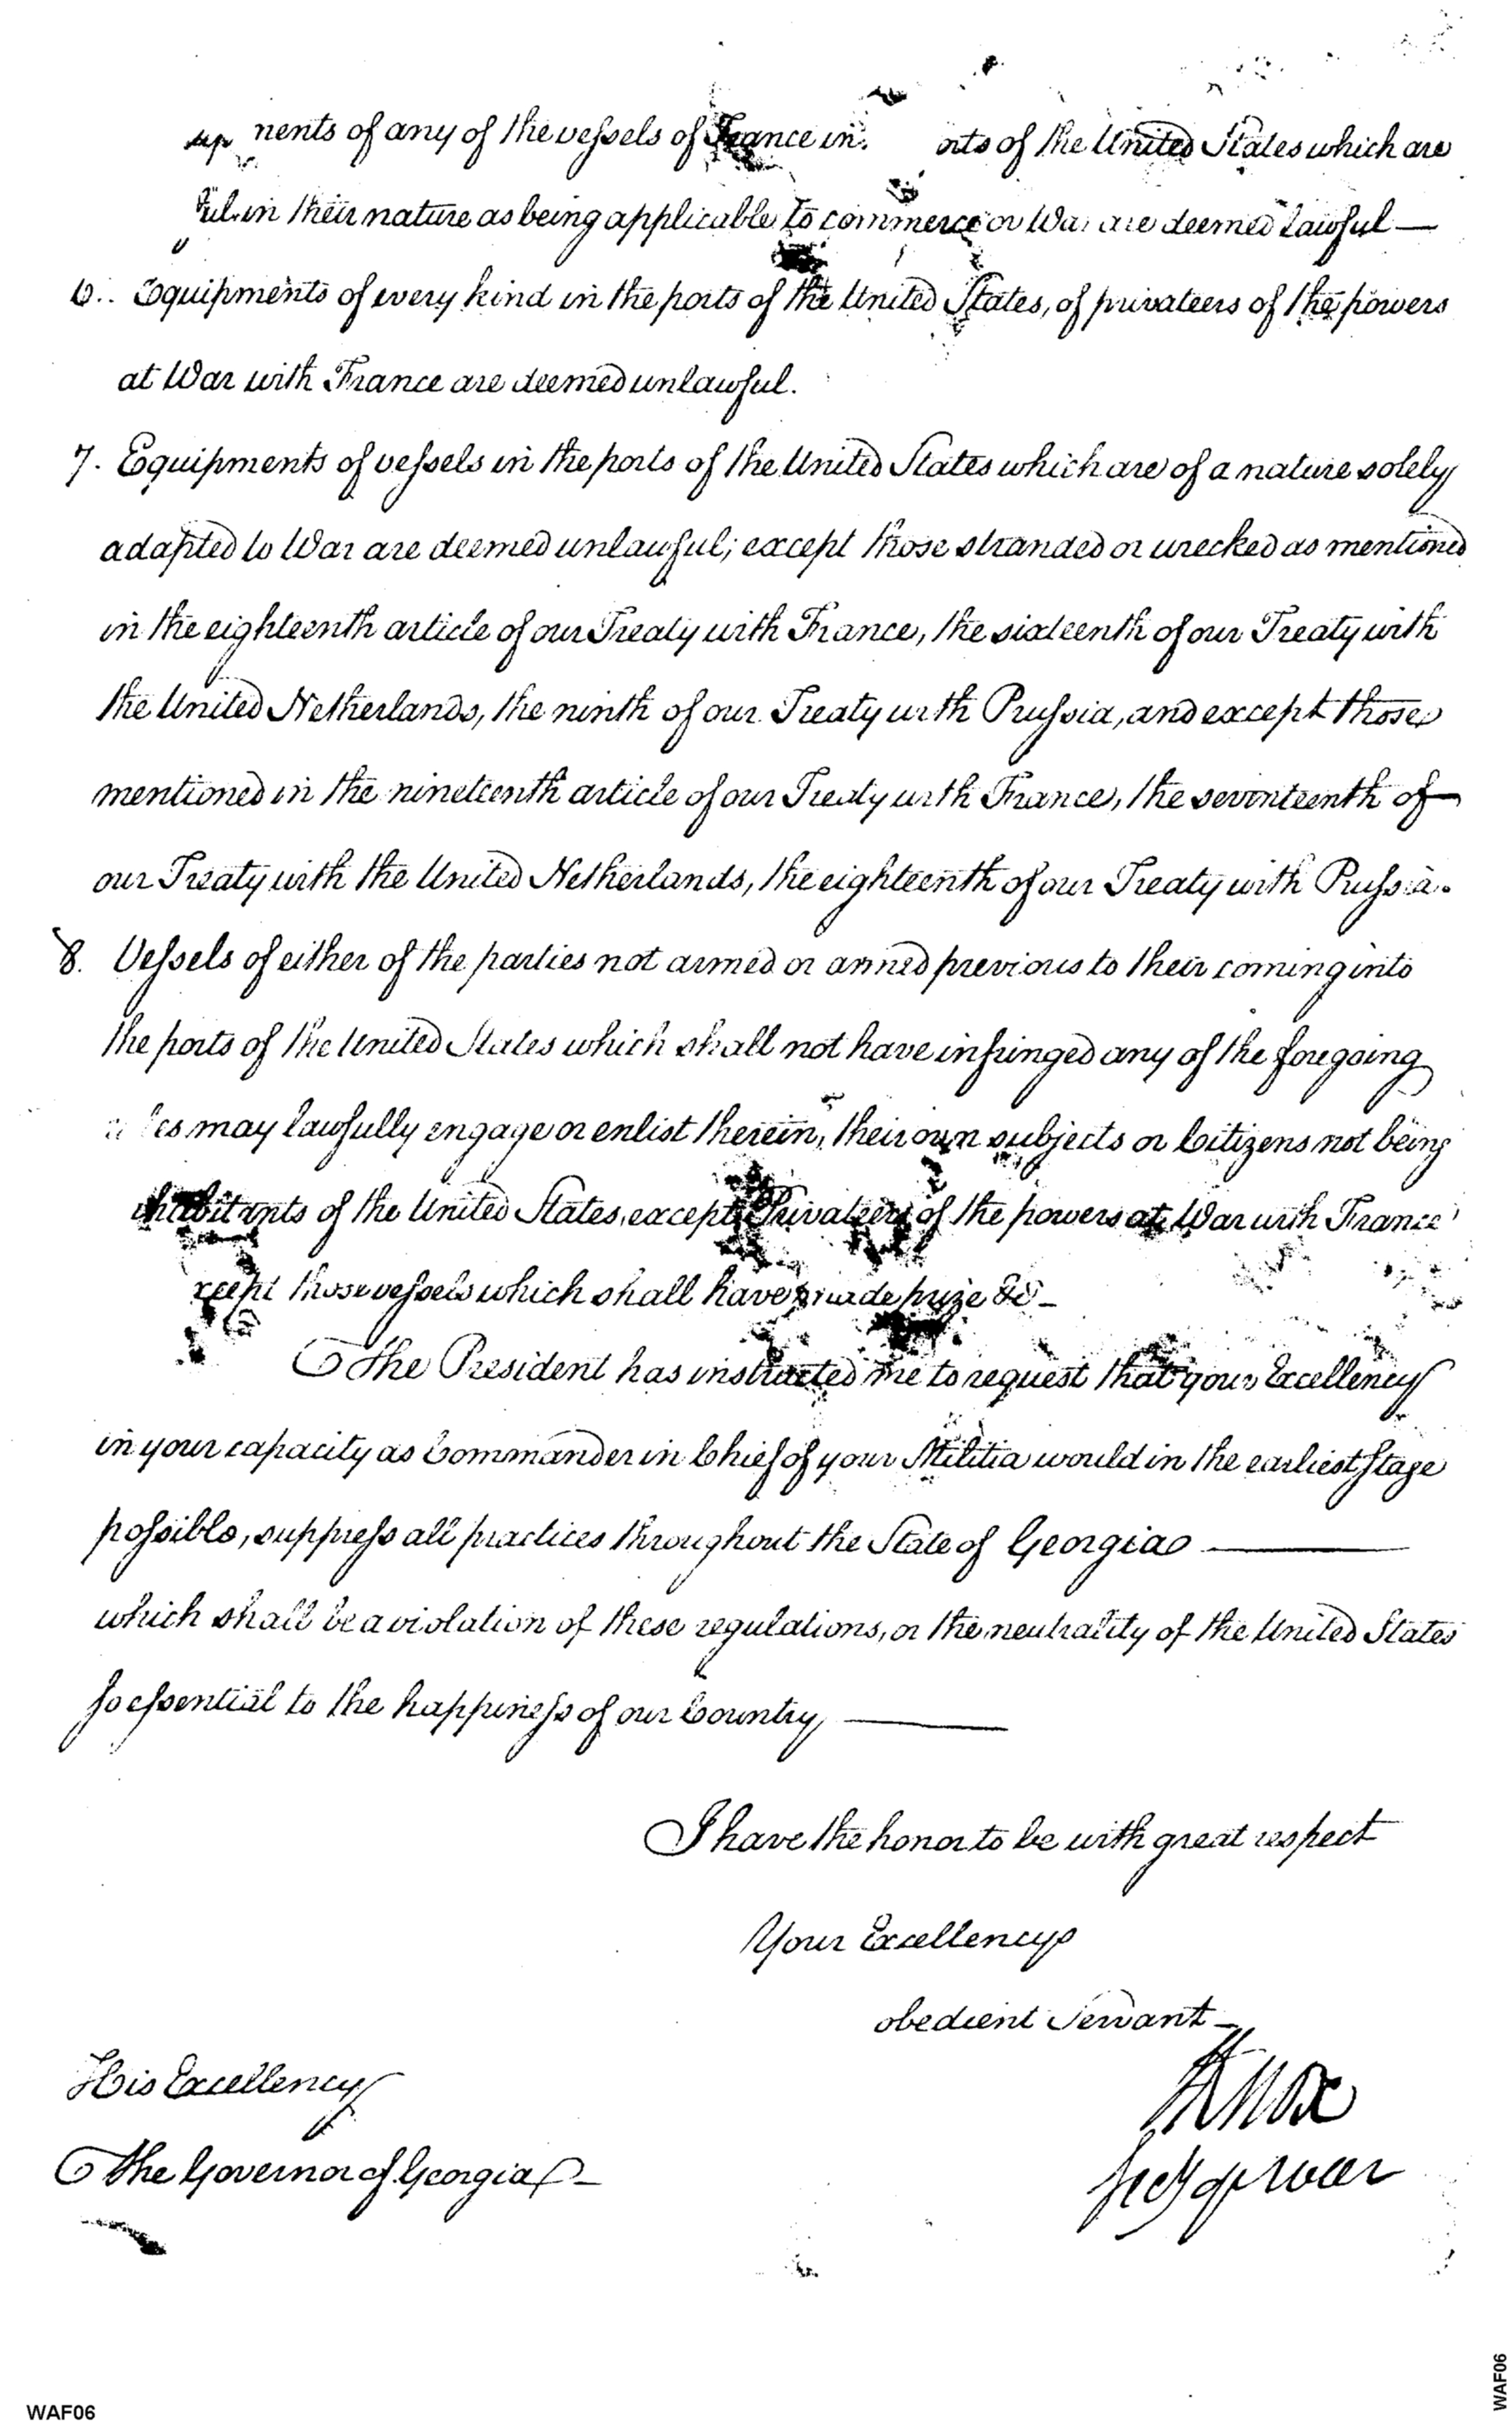 nents of any of the vessels of France in orts of the United States which are
in their nature as being applicable to commerce or War are deemed lawful —
6. Equipments of every kind in the ports of the United States, of privateers of the powers
at War with France are deemed unlawful.
7. Equipments of vessels in the ports of the United States which are of a nature solely
adapted to War are deemed unlawful; except those stranded or wrecked as mentioned
in the eighteenth article of our Treaty with France, the sixteenth of our Treaty with
the United Netherlands, the ninth of our Treaty with Prussia, and except those
mentioned in the nineteenth article of our Treaty with France, the seventeenth of
our Treaty with the United Netherlands, the eighteenth of our Treaty with Prussia.
8. Vessels of either of the parties not armed or armed previous to their coming into
the ports of the United States which shall not have infringed any of the foregoing
may lawfully engage or enlist therein, their own subjects or Citizens not being
inhabitants of the United States, except Privateers of the powers at War with France
xcept those vessels which shall have made prize &c —
The President has instructed me to request that your Excellency
in your capacity as Commander in Chief of your Militia would in the earliest stage
possible, suppress all practices throughout the State of Georgia ———
which shall be a violation of these regulations, or the neutrality of the United States
so essential to the happiness of our Country, ———
I have the honor to be with great respect
Your Excellencys
obedient Servant —
HKnox
Secy of War
His Excellency
The Governor of Georgia —
WAF06
WAF06